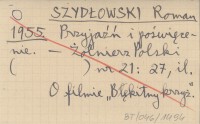 O SZYDŁOWSKI Roman
1955. Przyjaźń i poświęce-
nie. – Żołnierz Polski
( ) nr 21: 27, il.
O filmie "Błękitny krzyż."
BT/046/1494